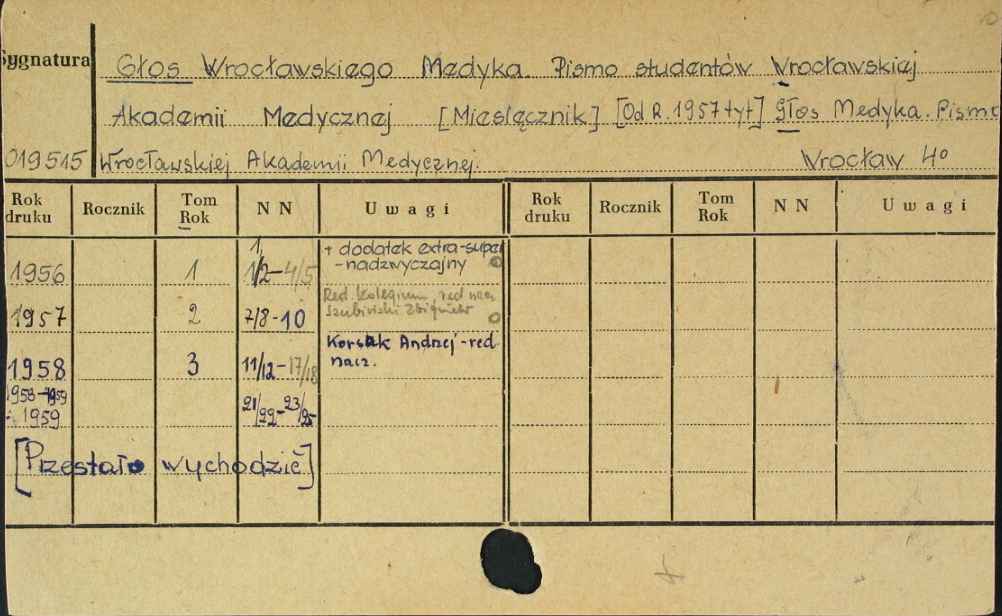 Sygnatura
Głos Wrocławskiego Medyka. Pismo studentów Wrocławskiej
Akademii Medycznej [Miesięcznik] [Od R. 1957 tyt] Głos Medyka. Pismo
019515 Wrocławskiej Akademii Medycznej. Wrocław 4°
Rok druku Rocznik Tom Rok N N Uwagi Rok druku Rocznik Tom Rok N N Uwagi
1956 1 1, 1/2-4/5 + dodatek extra-super-nadzwyczajny
1957 2 7/8-10 Red. Kolegium, red nacz Zbigniew
1958 3 11/12-17/18 Korsak Andrzej-red. nacz.
1958-1959
1959 21/22-23/25
[Przestało wychodzić]